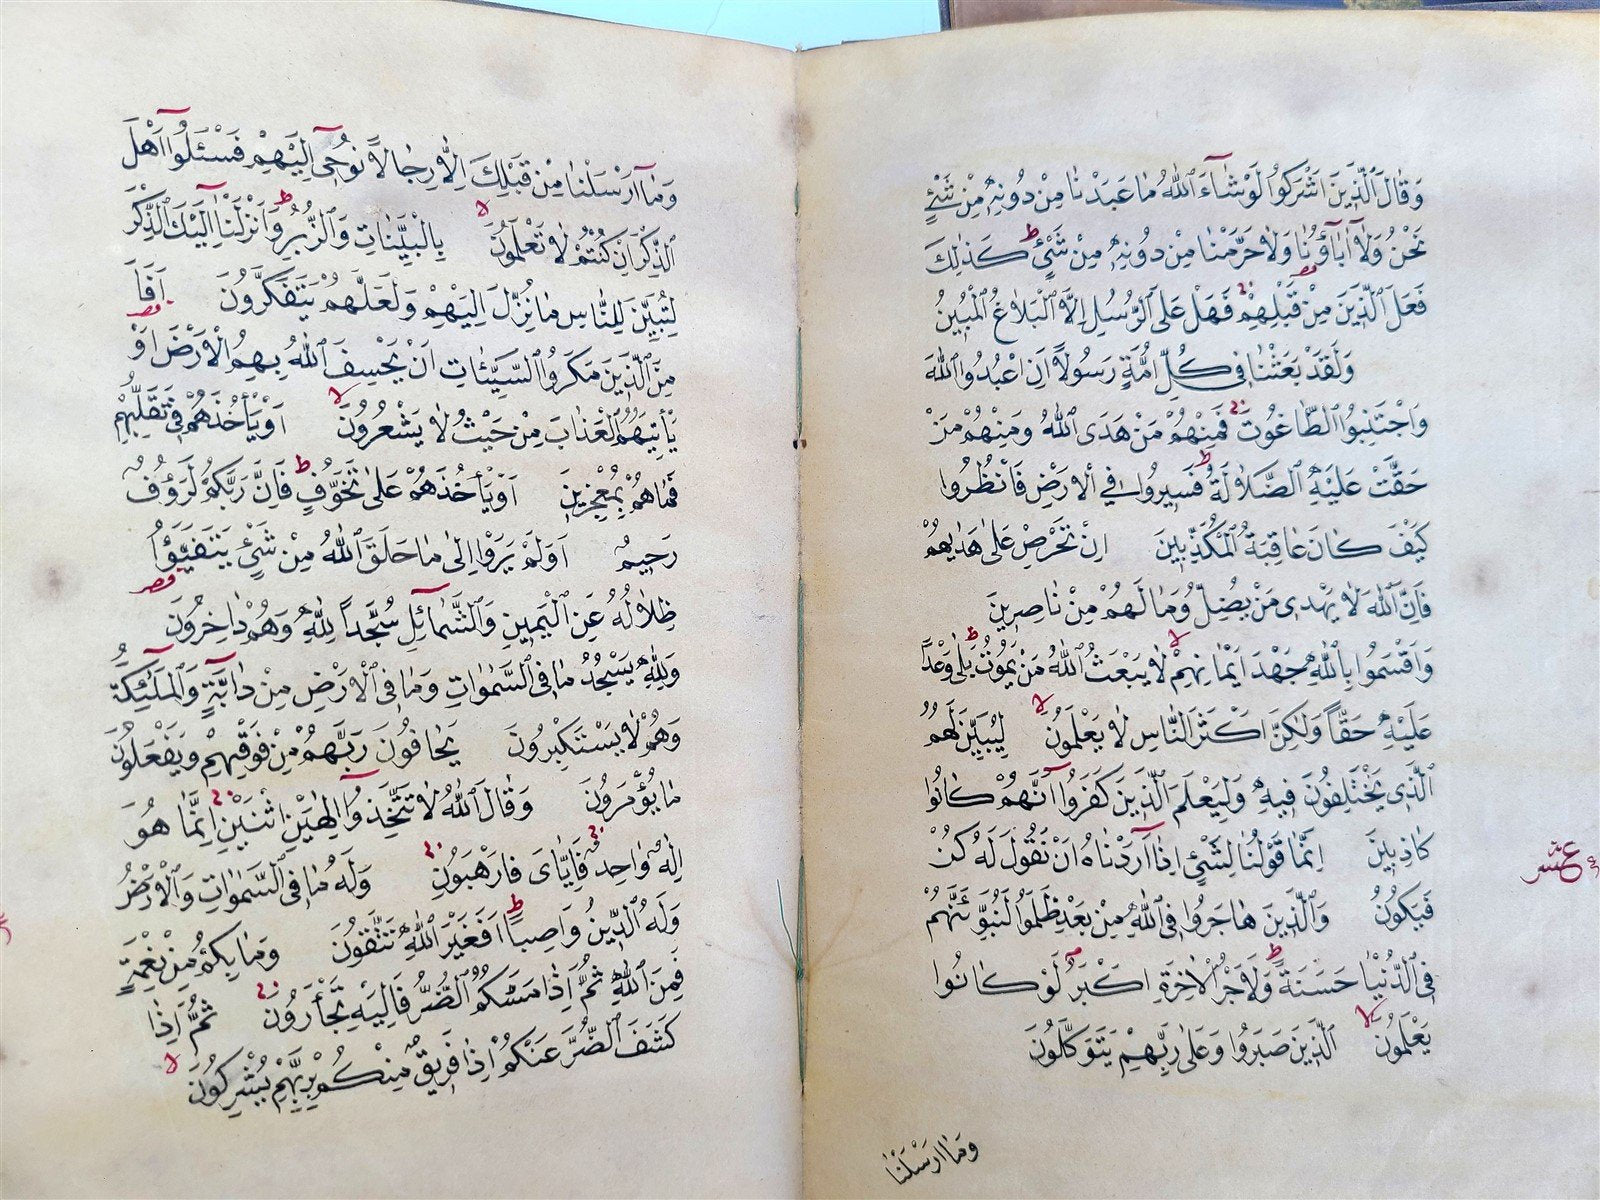 وَقَالَ ٱلَّذِينَ اَشْرَكُوا لَوْ شَآءَ ٱللهُ مَا عَبَدْنَا مِنْ دُونِهِ مِنْ شَيْءٍ
نَحْنُ وَلَا اٰبَاؤُنَا وَلَا حَرَّمْنَا مِنْ دُونِهِ مِنْ شَيْءٍ ط كَذٰلِكَ
فَعَلَ ٱلَّذِينَ مِنْ قَبْلِهِمْ فَهَلْ عَلَى ٱلرُّسُلِ اِلَّا ٱلْبَلَاغُ ٱلْمُبِينُ
وَلَقَدْ بَعَثْنَا فِي كُلِّ اُمَّةٍ رَسُولًا اَنِ اعْبُدُوا ٱللهَ
وَاجْتَنِبُوا ٱلطَّاغُوتَ فَمِنْهُمْ مَنْ هَدَى ٱللهُ وَمِنْهُمْ مَنْ
حَقَّتْ عَلَيْهِ ٱلضَّلَالَةُ ط فَسِيرُوا فِي ٱلْاَرْضِ فَانْظُرُوا
كَيْفَ كَانَ عَاقِبَةُ ٱلْمُكَذِّبِينَ اِنْ تَحْرِصْ عَلٰى هُدٰيهُمْ
فَاِنَّ ٱللهَ لَا يَهْدِى مَنْ يُضِلُّ وَمَا لَهُمْ مِنْ نَاصِرِينَ
وَاَقْسَمُوا بِاللهِ جَهْدَ اَيْمَانِهِمْ لا لَا يَبْعَثُ ٱللهُ مَنْ يَمُوتُ ط بَلٰى وَعْدًا
عَلَيْهِ حَقًّا وَلٰكِنَّ اَكْثَرَ ٱلنَّاسِ لَا يَعْلَمُونَ لا لِيُبَيِّنَ لَهُمُ
ٱلَّذِى يَخْتَلِفُونَ فِيهِ وَلِيَعْلَمَ ٱلَّذِينَ كَفَرُوا اَنَّهُمْ كَانُوا
كَاذِبِينَ اِنَّمَا قَوْلُنَا لِشَيْءٍ اِذَا اَرَدْنَاهُ اَنْ نَقُولَ لَهُ كُنْ
فَيَكُونُ وَٱلَّذِينَ هَاجَرُوا فِى ٱللهِ مِنْ بَعْدِ ظُلِمُوا لَنُبَوِّئَنَّهُمْ
فِى ٱلدُّنْيَا حَسَنَةً ط وَلَاَجْرُ ٱلْاٰخِرَةِ اَكْبَرُ لَوْ كَانُوا
يَعْلَمُونَ لا ٱلَّذِينَ صَبَرُوا وَعَلٰى رَبِّهِمْ يَتَوَكَّلُونَ
عشر
وَمَا اَرْسَلْنَا
وَمَا اَرْسَلْنَا مِنْ قَبْلِكَ اِلَّا رِجَالًا نُوحِى اِلَيْهِمْ فَسْئَلُوا اَهْلَ
ٱلذِّكْرِ اِنْ كُنْتُمْ لَا تَعْلَمُونَ لا بِالْبَيِّنَاتِ وَٱلزُّبُرِ ط وَاَنْزَلْنَا اِلَيْكَ ٱلذِّكْرَ
لِتُبَيِّنَ لِلنَّاسِ مَا نُزِّلَ اِلَيْهِمْ وَلَعَلَّهُمْ يَتَفَكَّرُونَ اَفَاَ
مِنَ ٱلَّذِينَ مَكَرُوا ٱلسَّيِّئَاتِ اَنْ يَخْسِفَ ٱللهُ بِهِمُ ٱلْاَرْضَ اَوْ
يَأْتِيَهُمُ ٱلْعَذَابُ مِنْ حَيْثُ لَا يَشْعُرُونَ لا اَوْ يَأْخُذَهُمْ فِى تَقَلُّبِهِمْ
فَمَاهُمْ بِمُعْجِزِينَ اَوْ يَأْخُذَهُمْ عَلٰى تَخَوُّفٍ ط فَاِنَّ رَبَّكُمْ لَرَؤُفٌ
رَحِيمٌ اَوَلَمْ يَرَوْا اِلٰى مَا خَلَقَ ٱللهُ مِنْ شَيْءٍ يَتَفَيَّؤُا
ظِلَالُهُ عَنِ ٱلْيَمِينِ وَٱلشَّمَائِلِ سُجَّدًا لِلّٰهِ وَهُمْ دَاخِرُونَ
وَلِلّٰهِ يَسْجُدُ مَا فِى ٱلسَّمٰوَاتِ وَمَا فِى ٱلْاَرْضِ مِنْ دَابَّةٍ وَٱلْمَلٰئِكَةُ
وَهُمْ لَا يَسْتَكْبِرُونَ يَخَافُونَ رَبَّهُمْ مِنْ فَوْقِهِمْ وَيَفْعَلُونَ
مَا يُؤْمَرُونَ وَقَالَ ٱللهُ لَا تَتَّخِذُوا اِلٰهَيْنِ اثْنَيْنِ اِنَّمَا هُوَ
اِلٰهٌ وَاحِدٌ فَاِيَّاىَ فَارْهَبُونِ وَلَهُ مَا فِى ٱلسَّمٰوَاتِ وَٱلْاَرْضِ
وَلَهُ ٱلدِّينُ وَاصِبًا ط اَفَغَيْرَ ٱللهِ تَتَّقُونَ وَمَا بِكُمْ مِنْ نِعْمَةٍ
فَمِنَ ٱللهِ ثُمَّ اِذَا مَسَّكُمُ ٱلضُّرُّ فَاِلَيْهِ تَجْأَرُونَ ثُمَّ اِذَا
كَشَفَ ٱلضُّرَّ عَنْكُمْ اِذَا فَرِيقٌ مِنْكُمْ بِرَبِّهِمْ يُشْرِكُونَ لا